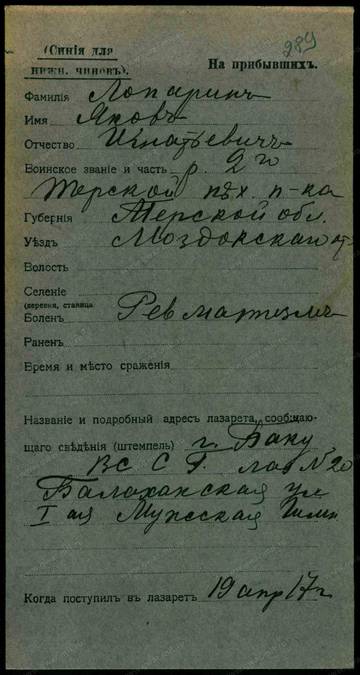 289
(Синія для
нижн. чиновъ).
На прибывшихъ.
Фамилія Лопаринъ
Имя Яковъ
Отчество Игнатьевичъ
Воинское званіе и часть р. 2го
Терской пѣх. п-ка
Губернія Терской обл.
Уѣздъ Моздокскаго
Волость
Селеніе
(деревня, станица
Боленъ Ревматизмъ
Раненъ
Время и мѣсто сраженія
Названіе и подробный адресъ лазарета, сообщаю-
щаго свѣдѣнія (штемпель) г. Баку
ВС С Г. лаз № 20
Балаханская ул
I ая Мужская Гимн
Когда поступилъ въ лазаретъ 19 апр 17 г